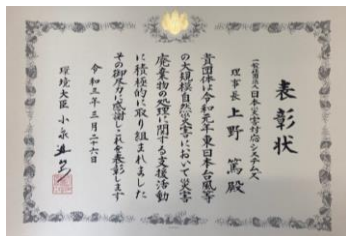 表彰状
一般社団法人日本災害対応システムズ
理事長 上野 篤 殿
貴団体は令和元年東日本台風等
の大規模自然災害において災害
廃棄物の処理に関する支援活動
に積極的に取り組まれました
その御尽力に感謝しこれを表彰します
令和三年三月二十六日
環境大臣 小泉進次郎